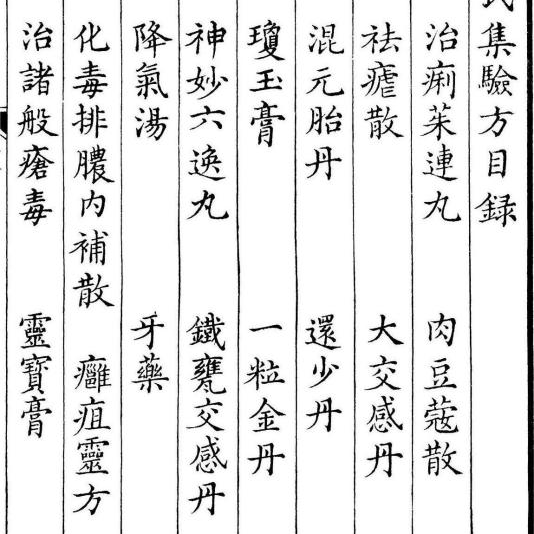 集驗方目録
治痢茱連丸 肉豆蔲散
祛瘧散 大交感丹
混元胎丹 還少丹
瓊玉膏 一粒金丹
神妙六逸丸 鐵甕交感丹
降氣湯 牙藥
化毒排膿内補散 癰疽靈方
治諸般瘡毒 靈寶膏